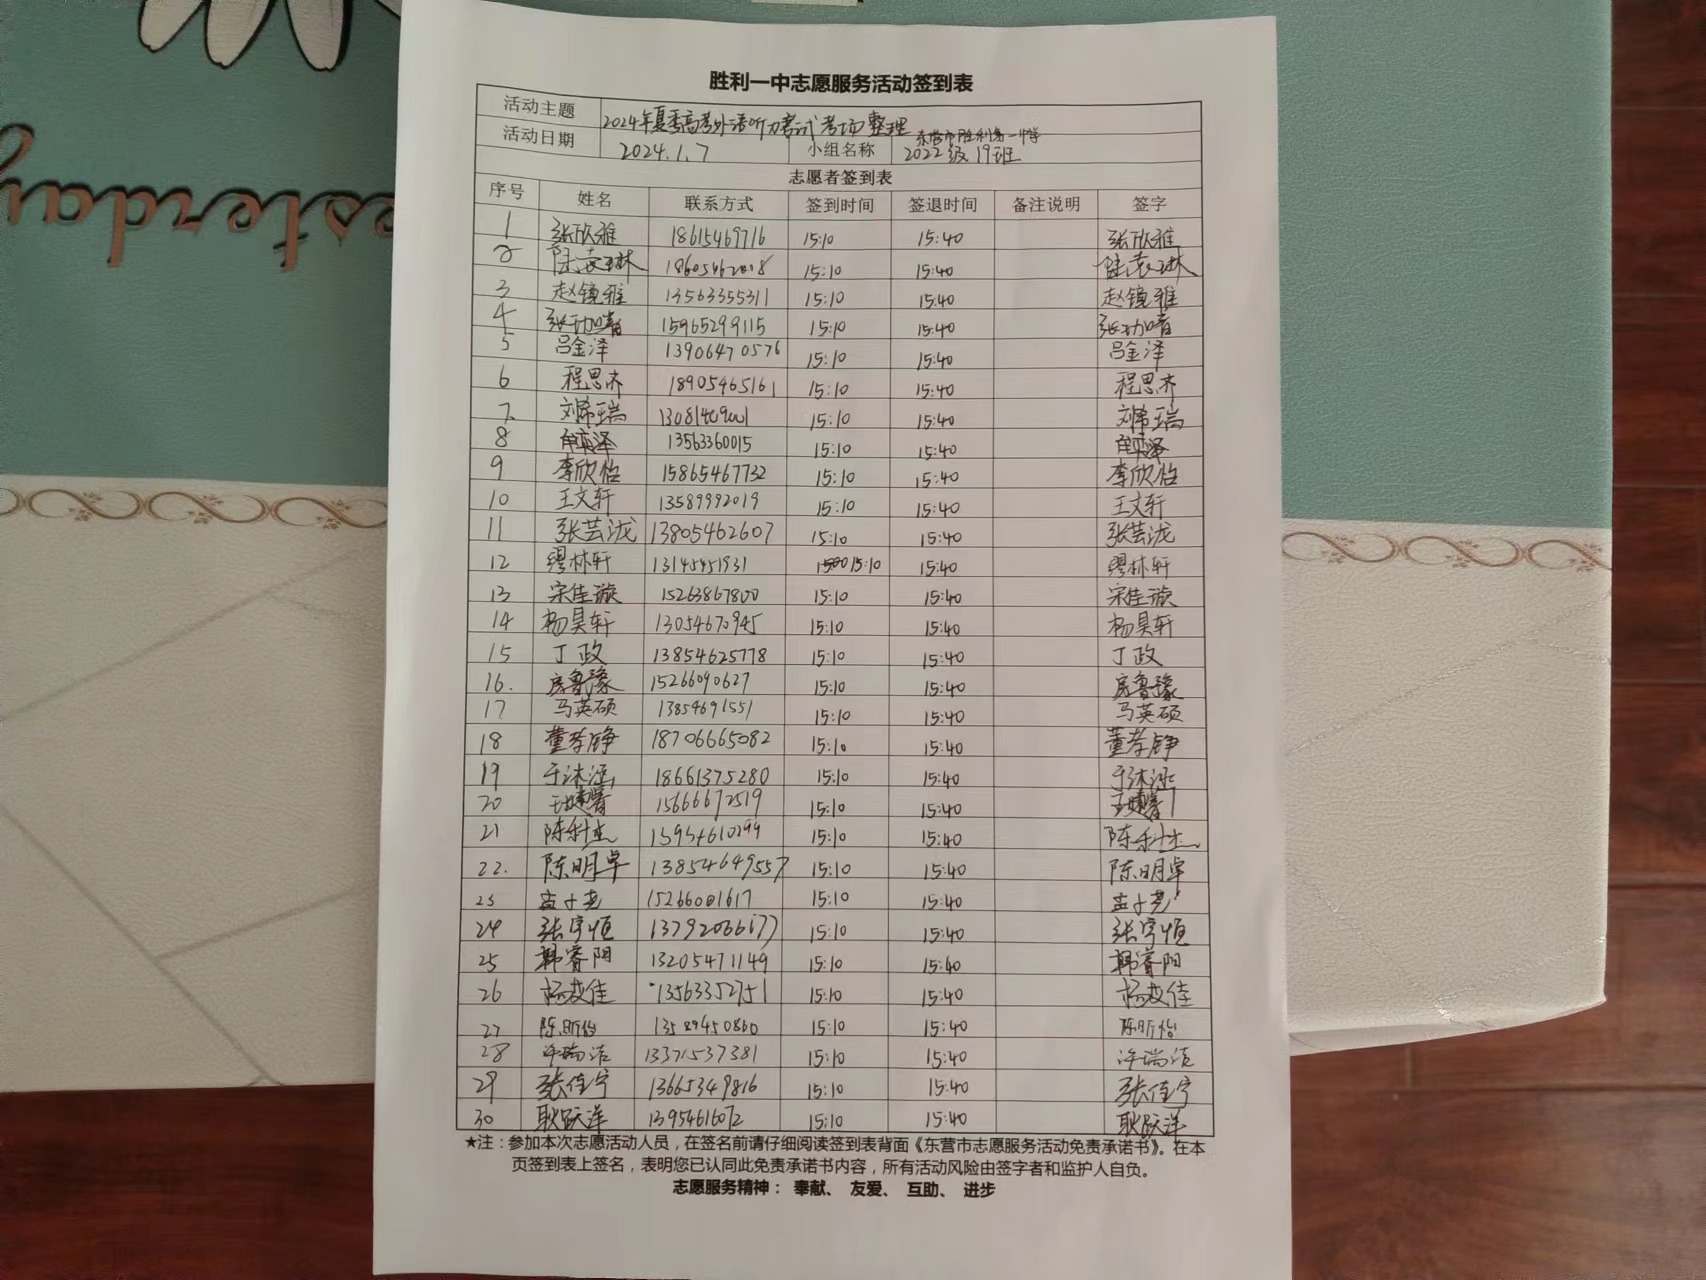 esterday
胜利一中志愿服务活动签到表
活动主题 2024年夏季高考外语听力考试考场整理
活动日期 2024.1.7 小组名称 东营市胜利第一中学 2022级19班
志愿者签到表
序号 姓名 联系方式 签到时间 签退时间 备注说明 签字
1 张欣雅 18615469716 15:10 15:40 张欣雅
2 陆袁琳 15:10 15:40 陆袁琳
3 赵镜雅 13563355311 15:10 15:40 赵镜雅
4 15965299115 15:10 15:40
5 吕金泽 13906470576 15:10 15:40 吕金泽
6 程思齐 18905465161 15:10 15:40 程思齐
7 刘希瑞 15:10 15:40 刘希瑞
8 13563360015 15:10 15:40
9 李欣怡 15865467732 15:10 15:40 李欣怡
10 王文轩 13589992019 15:10 15:40 王文轩
11 张芸泷 13805462607 15:10 15:40 张芸泷
12 缪林轩 13145451931 15:10 15:40 缪林轩
13 宋佳璇 15263867800 15:10 15:40 宋佳璇
14 杨昊轩 13054670945 15:10 15:40 杨昊轩
15 丁政 13854625778 15:10 15:40 丁政
16. 房鲁豫 15266090627 15:10 15:40 房鲁豫
17 马英硕 13854691551 15:10 15:40 马英硕
18 董孝铮 18706665082 15:10 15:40 董孝铮
19 于沐涵 18661375280 15:10 15:40 于沐涵
20 15666672519 15:10 15:40
21 陈利杰 15:10 15:40 陈利杰
22. 陈明卓 13854649557 15:10 15:40 陈明卓
23 孟子尧 15266001617 15:10 15:40 孟子尧
24 张宇恒 15:10 15:40 张宇恒
25 韩睿阳 13205471149 15:10 15:40 韩睿阳
26 杨艾佳 13563352751 15:10 15:40 杨艾佳
27 陈昕怡 13589450860 15:10 15:40 陈昕怡
28 许瑞洁 13371537381 15:10 15:40 许瑞洁
29 张佳宁 13665349816 15:10 15:40 张佳宁
30 耿跃洋 13954616072 15:10 15:40 耿跃洋
★注：参加本次志愿活动人员，在签名前请仔细阅读签到表背面《东营市志愿服务活动免责承诺书》。在本
页签到表上签名，表明您已认同此免责承诺书内容，所有活动风险由签字者和监护人自负。
志愿服务精神： 奉献、 友爱、 互助、 进步